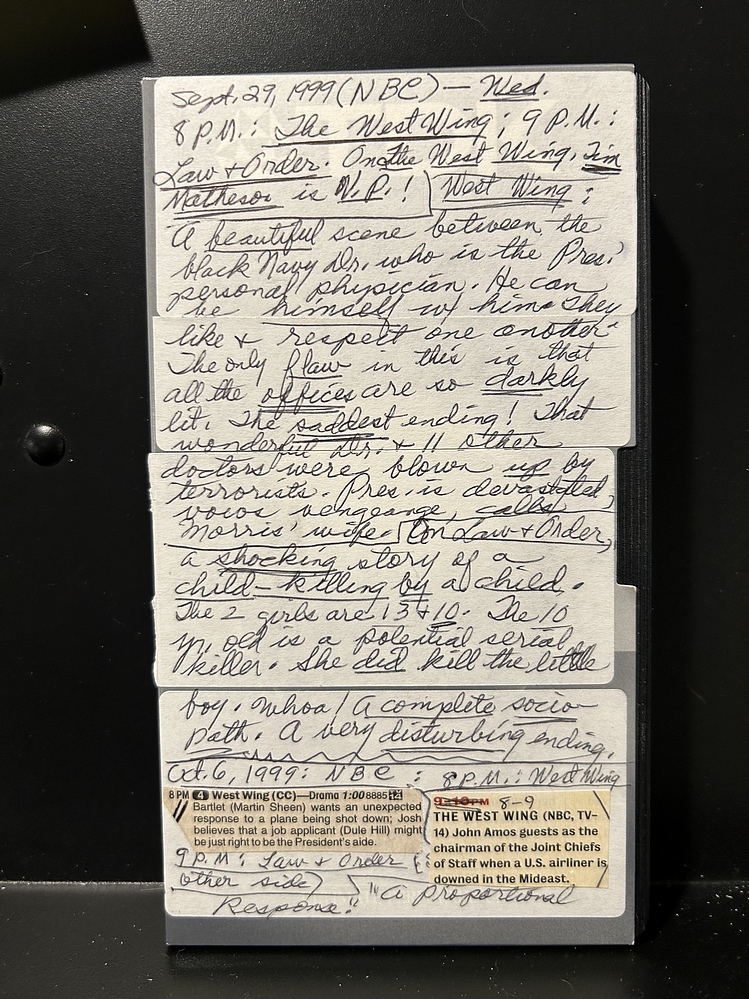 Sept. 29, 1999 (NBC) — Wed.
8 P.M.: The West Wing; 9 P.M.:
Law + Order. On the West Wing, Tim
Matheson is V.P.! West Wing:
A beautiful scene between the
black Navy Dr. who is the Pres.'
personal physician. He can
be himself w/ him - they
like + respect one another.
The only flaw in this is that
all the offices are so darkly
lit. The saddest ending! That
wonderful Dr. + 11 other
doctors were blown up by
terrorists. Pres. is devastated,
vows vengeance, calls
Morris' wife. On Law + Order,
a shocking story of a
child-killing by a child.
The 2 girls are 13 + 10. The 10
yr. old is a potential serial
killer. She did kill the little
boy. Whoa! A complete socio-
path. A very disturbing ending.
Oct. 6, 1999: NBC: 8 P.M.: West Wing
8 PM 4 West Wing (CC)—Drama 1:00 8885142
Bartlet (Martin Sheen) wants an unexpected
response to a plane being shot down; Josh
believes that a job applicant (Dule Hill) might
be just right to be the President's aide.
9-10PM 8-9
THE WEST WING (NBC, TV-
14) John Amos guests as the
chairman of the Joint Chiefs
of Staff when a U.S. airliner is
downed in the Mideast.
9 P.M: Law + Order
other side) "A Proportional
Response."